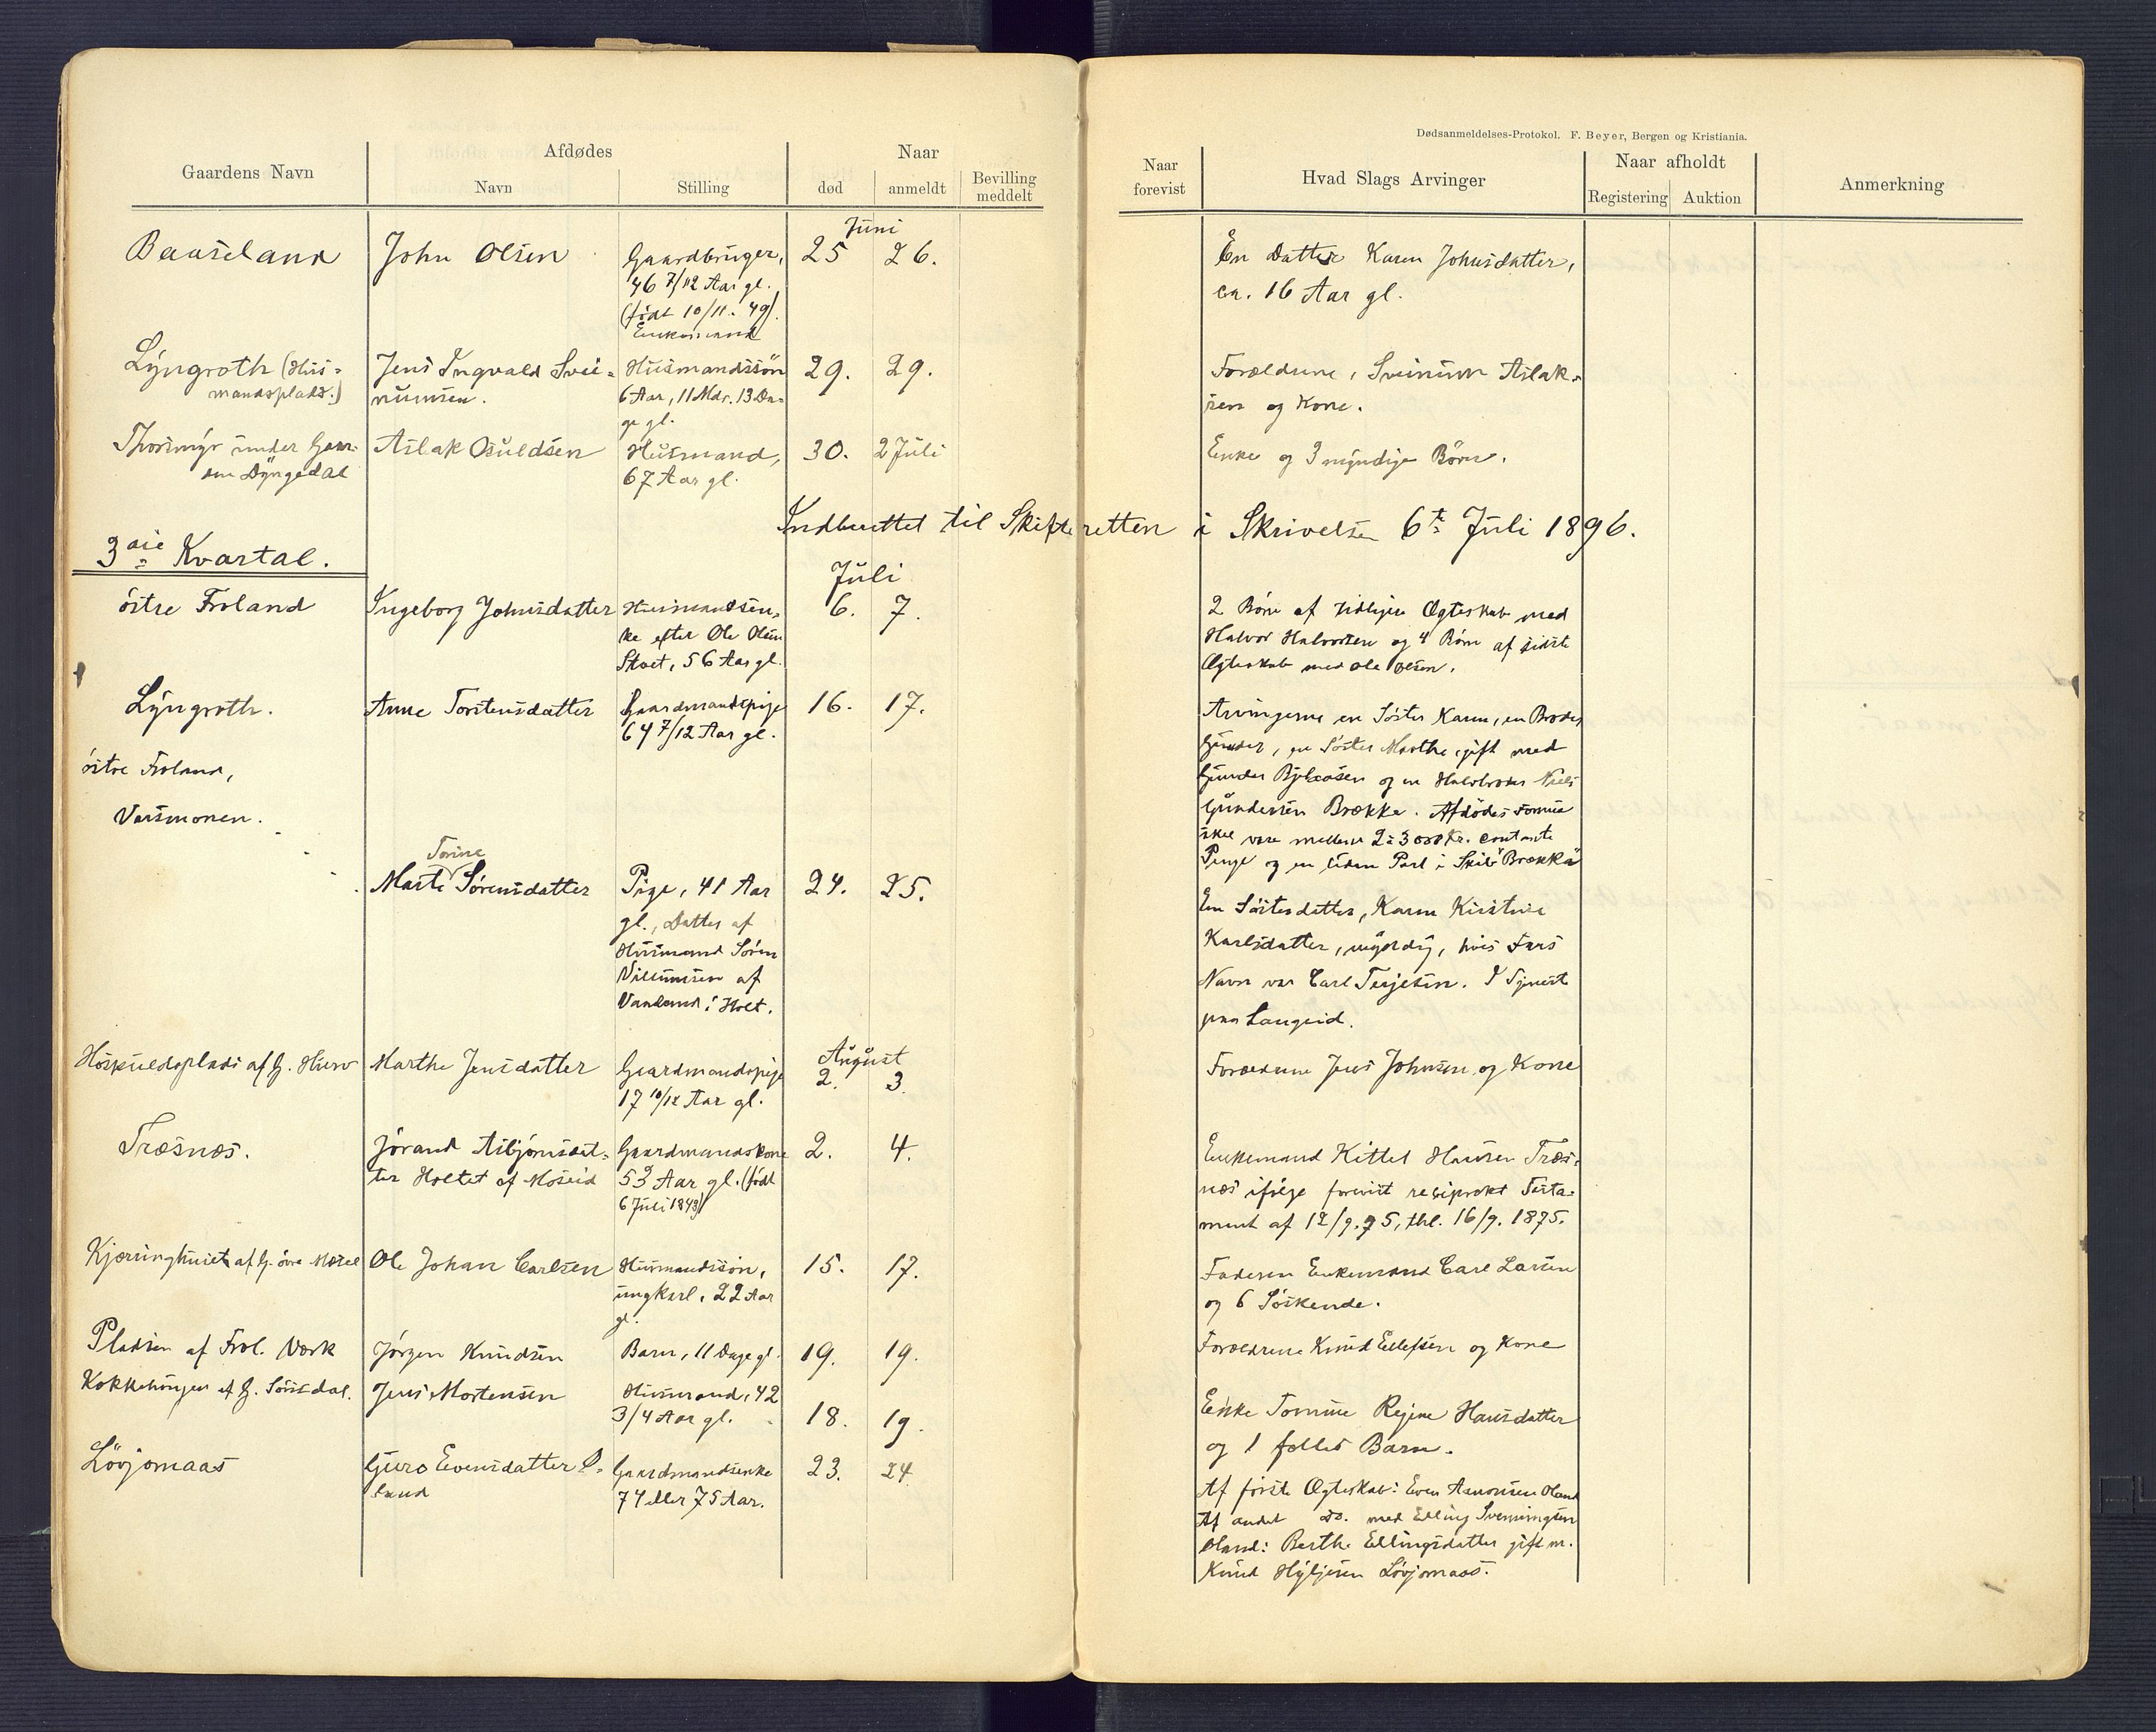 Dødsanmeldelses-Protokol. F. Beyer, Bergen og Kristiania.
Gaardens Navn
Afdødes
Navn
Stilling
Naar
død
anmeldt
Bevilling
meddelt
Naar
forevist
Hvad Slags Arvinger
Naar afholdt
Registering
Auktion
Anmerkning
Juni
Baaseland
John Olsen
Gaardbruger,
46 7/12 Aar gl.
(født 10/11. 49).
Enkemand
25
26.
En Datter Karen Johnsdatter,
ca. 16 Aar gl.
Lyngroth (Hus=
mandsplads.)
Jens Ingvald Svei=
nunsen.
Husmandssøn
6 Aar, 11 Mdr. 13 Da=
ge gl.
29.
29.
Forældrene, Sveinun Aslak=
sen og Kone.
Thorsmyr under Gaar=
den Dyngedal
Aslak Osuldsen
Husmand,
67 Aar gl.
30.
2 Juli
Enke og 3 myndige Børn.
Indberettet til Skifteretten i Skrivelse 6te Juli 1896.
3die Kvartal.
Juli
østre Froland
Ingeborg Johnsdatter
Husmandsen=
ke efter Ole Olsen
56 Aar gl.
6.
7.
2 Børn af tidligere Ægteskab med
Halvor Halvorsen og 4 Børn af sidste
Ægteskab med Ole Olsen.
Lyngroth.
Anne Torstensdatter
Gaardmandspige
64 7/12 Aar gl.
16.
17.
Arvingerne en Søster Karen, en Broder
Gunder, en Søster Marthe, gift med
Gunder og en Halvbroder Niels
Gundersen Brække. Afdødes Formue
skal være mellem 2 à 3000 Kr. contante
Penge og en liden Part i Skib
østre Froland,
Vasmonen.
Marte Torine Sørensdatter
Pige, 41 Aar
gl., Datter af
Husmand Søren
Villumsen af
Vanland i Holt.
24.
25.
En Søsterdatter, Karen Kirstine
Karlsdatter, umyndig, hvis Fars
Navn var Carl Terjesen. I Tjeneste
paa Langeid.
August
Høskuldsplads af G. Hurv
Marthe Jensdatter
Gaardmandspige
17 10/12 Aar gl.
2.
3.
Forældrene Jens Johnsen og Kone
Træsnæs.
Jørand Asbjørnsdat=
ter Holtet af Moseid
Gaardmandskone
53 Aar gl. (født
6 Juli 1843)
2.
4.
Enkemand Kittel Hansen Træs=
næs ifølge forevist resiprokt Testa=
ment af 12/9.75, thl. 16/9. 1875.
Kjærringhuset af G. øvre Mæsel
Ole Johan Carlsen
Husmandssøn,
ungkarl, 22 Aar
gl.
15.
17.
Faderen Enkemand Carl Larsen
og 6 Søskende.
Pladsen af Frol. Værk
Jørgen Knudsen
Barn, 11 Dage gl.
19.
19.
Forældrene Knud Ellefsen og Kone
af G.
Jens Mortensen
Husmand, 42
3/4 Aar gl.
18.
19.
Enke Tomine Regine Hansdatter
og 1 fælles Barn.
Løvjomaas
Guro Evensdatter Ø=
land
Gaardmandsenke
74 eller 75 Aar.
23.
24
Af første Ægteskab: Even
Af andet do. med Elling Sveinungsen
Øland: Berthe Ellingsdatter gift m.
Knud Løvjomaas.